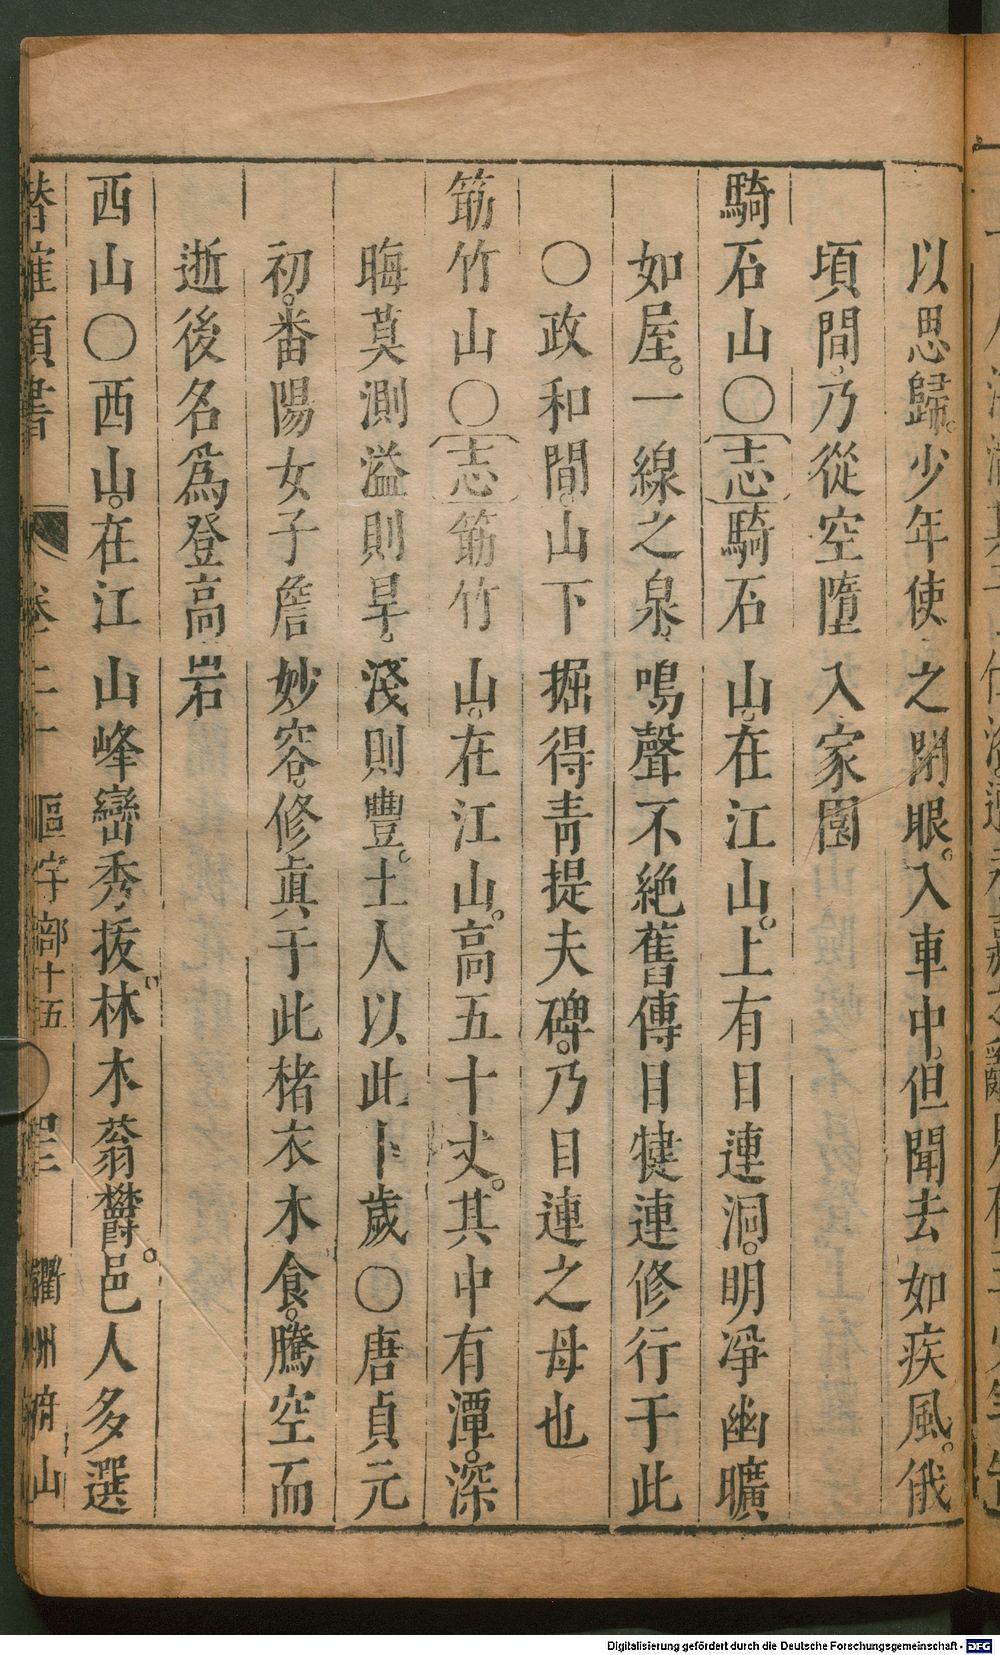 以思歸。少年使之閉眼。入車中。但聞去如疾風。俄
頃間。乃從空墮入家園
騎石山〇〔志〕騎石山。在江山。上有目連洞。明淨幽曠
如屋。一線之泉。鳴聲不絶舊傳目犍連修行于此
〇政和間。山下掘得青提夫碑。乃目連之母也
筯竹山〇〔志〕筯竹山。在江山。高五十丈。其中有潭。深
晦莫測溢則旱。淺則豐。土人以此卜歲〇唐貞元
初。番陽女子詹妙容。修眞于此楮衣木食。騰空而
逝後名爲登高岩
西山〇西山。在江山峰巒秀拔。林木蓊欝。邑人多選
潛確類書 卷二十一 區宇部十五 衢州府山
Digitalisierung gefördert durch die Deutsche Forschungsgemeinschaft - DFG